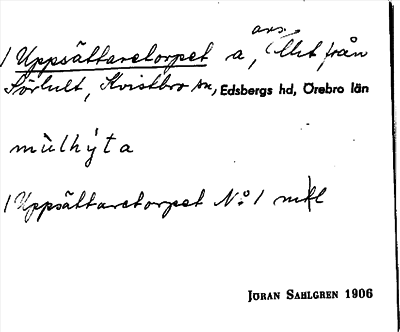 / Uppsättaretorpet a, avs. till från
Sörhult, Kvistbro sn, Edsbergs hd, Örebro län
mùlhýta
/ Uppsättaretorpet No 1 mtl
JÖRAN SAHLGREN 1906